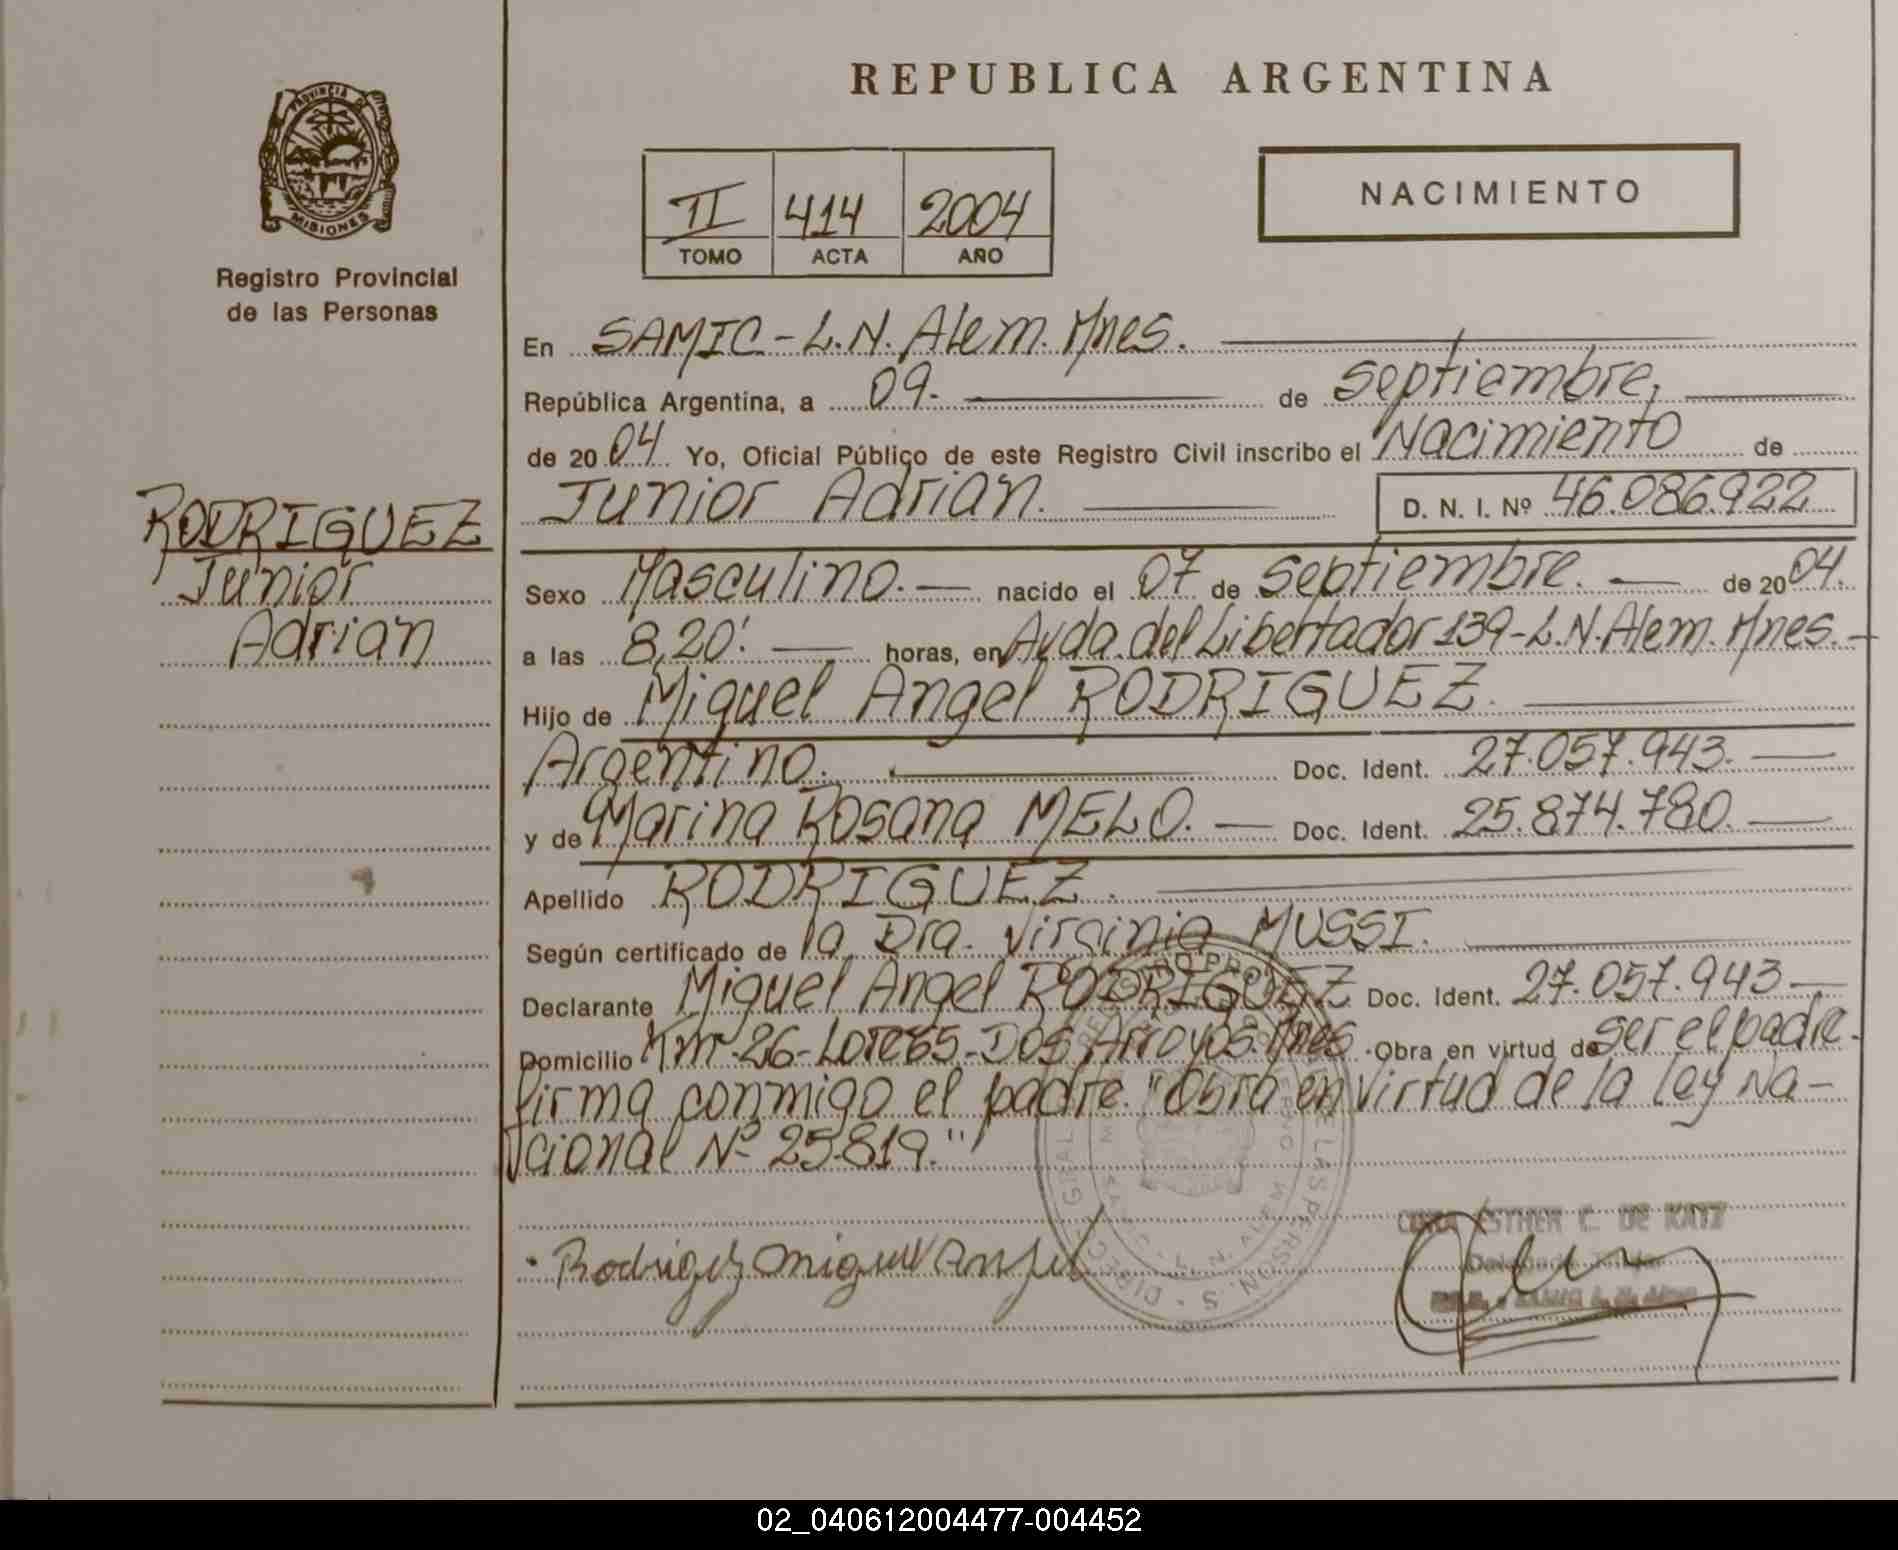 REPUBLICA ARGENTINA
PROVINCIA DE
MISIONES
Registro Provincial
de las Personas
II 414 2004
TOMO ACTA AÑO
NACIMIENTO
En SAMIC - L.N. Alem. Mnes.
República Argentina, a 09. de septiembre,
de 2004 Yo, Oficial Público de este Registro Civil inscribo el Nacimiento de
Junior Adrian. D. N. I. Nº 46.086.922
RODRIGUEZ
Junior
Adrian
Sexo Masculino. nacido el 07 de septiembre. de 2004.
a las 8,20'. horas, en Avda. del Libertador 139 - L.N. Alem. Mnes.
Hijo de Miguel Angel RODRIGUEZ.
Argentino. Doc. Ident. 27.057.943.
y de Marina Rosana MELO. Doc. Ident. 25.874.780.
Apellido RODRIGUEZ.
Según certificado de la Dra. Virginia MUSSI.
Declarante Miguel Angel RODRIGUEZ Doc. Ident. 27.057.943
Domicilio Km. 26 - Lote 65 - Dos Arroyos. Mnes. Obra en virtud de ser el padre.
firma conmigo el padre. "Obra en virtud de la ley Na-
cional Nº 25819."
Rodriguez Miguel Angel
ESTHER C. DE KATZ
02_040612004477-004452